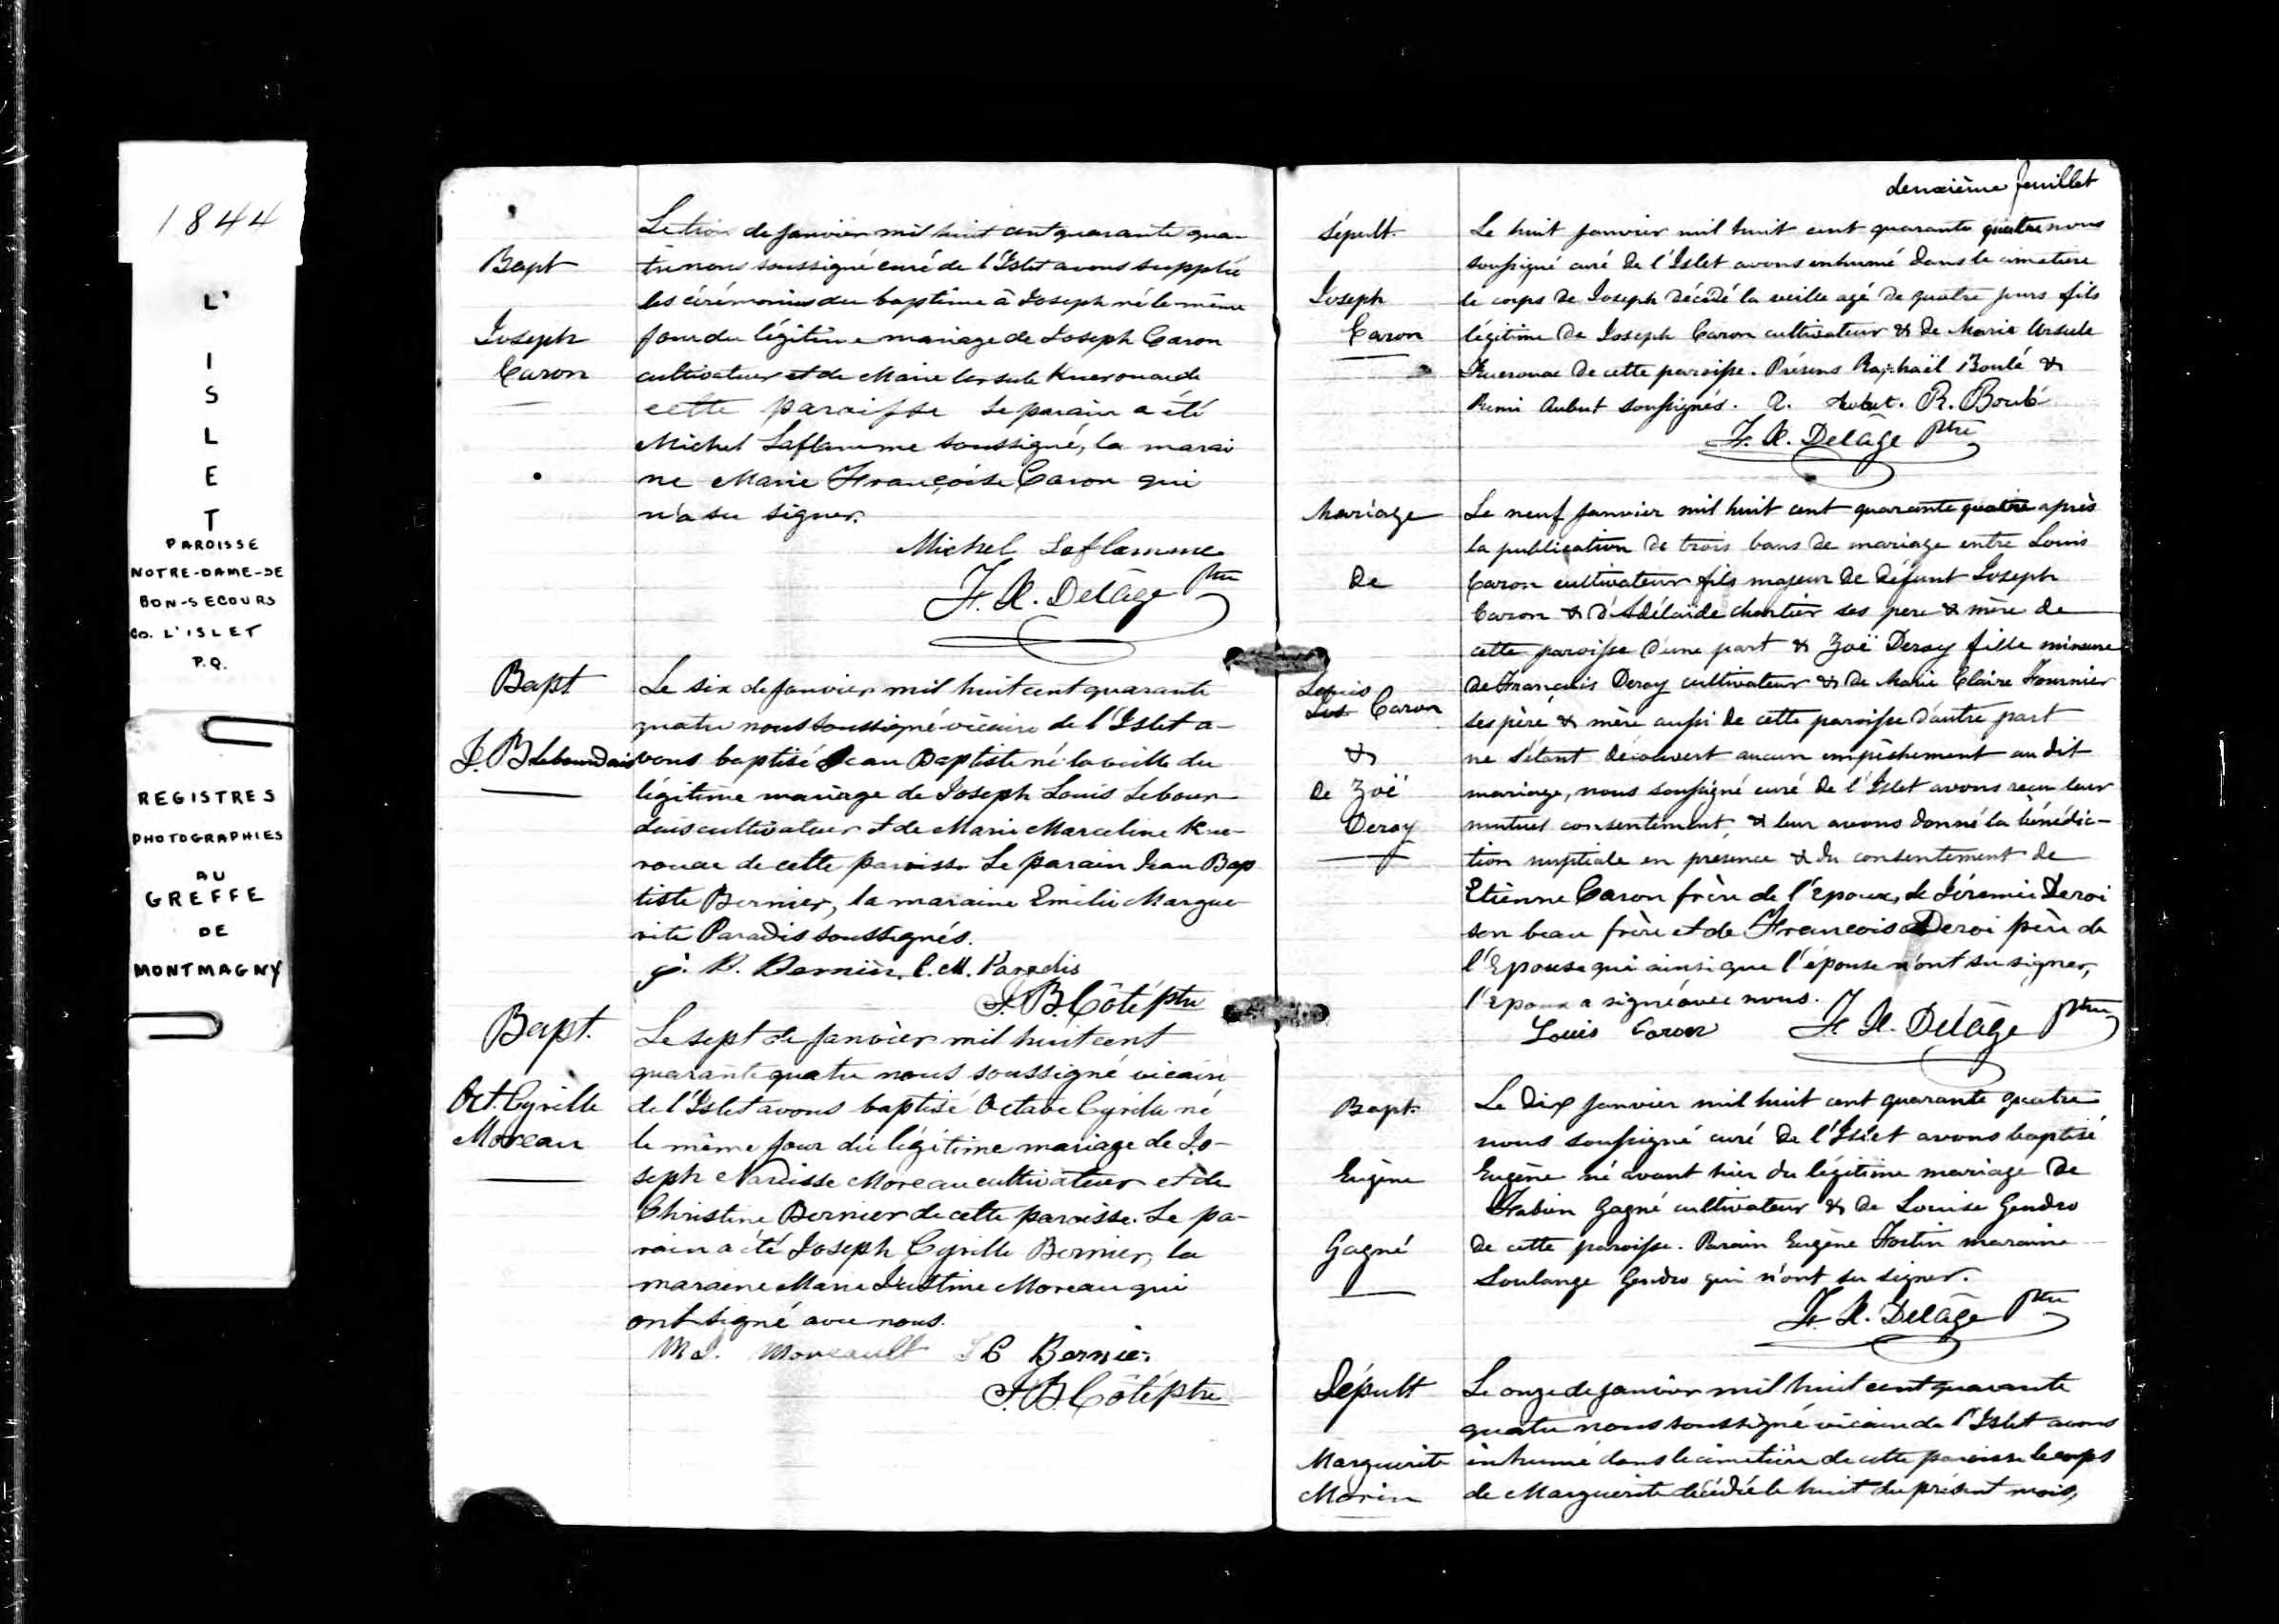 1844
L'
I
S
L
E
T
PAROISSE
NOTRE-DAME-DE
BON-SECOURS
CO. L'ISLET
P.Q.
REGISTRES
PHOTOGRAPHIES
AU
GREFFE
DE
MONTMAGNY
Bapt
Joseph
Caron
Le trois de janvier mil huit cent quarante qua-
tre nous soussigné curé de l'Islet avons supplié
les cérémonies du baptême à Joseph né le même
jour du légitime mariage de Joseph Caron
cultivateur et de Marie Ursule Kuerouac de
cette paroisse le parain a été
Michel Laflamme soussigné, la marai
ne Marie Françoise Caron qui
n'a su signer.
Michel Laflamme
F. X. Delâge Ptre
Bapt
J. B Lebourdais
Le six de janvier mil huit cent quarante
quatre nous soussigné vicaire de l'Islet a-
vons baptisé Jean Baptiste né la veille du
légitime mariage de Joseph Louis Lebour-
dais cultivateur et de Marie Marceline Kue-
rouac de cette paroisse Le parain Jean Bap
tiste Bernier, la maraine Emilie Margue-
rite Paradis soussignés.
J. B. Bernier, E. M. Paradis
J. B. Côté ptre
Bapt.
Oct. Cyrille
Moreau
Le sept de janvier mil huit cent
quarante quatre nous soussigné vicaire
de l'Islet avons baptisé Octave Cyrille né
le même jour du légitime mariage de Jo-
seph Narcisse Moreau cultivateur et de
Christine Bernier de cette paroisse. Le pa-
rain a été Joseph Cyrille Bernier, la
maraine Marie Justine Moreau qui
ont signé avec nous.
M J. Moreault J C Bernier
J. B. Côté ptre
deuxième feuillet
Sépult.
Joseph
Caron
Le huit janvier mil huit cent quarante quatre nous
soussigné curé de l'Islet avons inhumé dans le cimetiere
le corps de Joseph décédé la veille agé de quatre jours fils
légitime de Joseph Caron cultivateur & de Marie Ursule
Kuerouac de cette paroisse. Présens Raphaël Boulé &
Remi Aubut soussignés. R. Aubut. R. Boulé
F. X. Delâge Ptre
Mariage
de
Louis
Caron
&
de Zoë
Deroy
Le neuf janvier mil huit cent quarante quatre après
la publication de trois bans de mariage entre Louis
Caron cultivateur fils majeur de défunt Joseph
Caron & d'Adélaïde chartier ses pere & mère de
cette paroisse d'une part & Zoë Deroy fille mineure
de François Deroy cultivateur & de Marie Claire Fournier
ses père & mère aussi de cette paroisse d'autre part
ne s'étant découvert aucun empêchement au dit
mariage, nous soussigné curé de l'Islet avons reçu leur
mutuel consentement, & leur avons donné la bénédic-
tion nuptiale en presence & du consentement de
Etienne Caron frère de l'époux, de Jéremie Deroi
son beau frère et de Francois Deroi père de
l'Epouse qui ainsi que l'épouse n'ont su signer,
l'Epoux a signé avec nous.
Louis Caron F. X. Delâge Ptre
Bapt.
Eugène
Gagné
Le dix janvier mil huit cent quarante quatre
nous soussigné curé de l'Islet avons baptisé
Eugène né avant hier du légitime mariage de
Fabien Gagné cultivateur & de Louise Gendro
de cette paroisse. Parain Eugène Fortin maraine
Soulange Gendro qui n'ont su signer.
F. X. Delâge Ptre
Sépult
Marguerite
Morin
Le onze de janvier mil huit cent quarante
quatre nous soussigné vicaire de l'Islet avons
inhumé dans le cimetière de cette paroisse le corps
de Marguerite décédée le huit du présent mois,